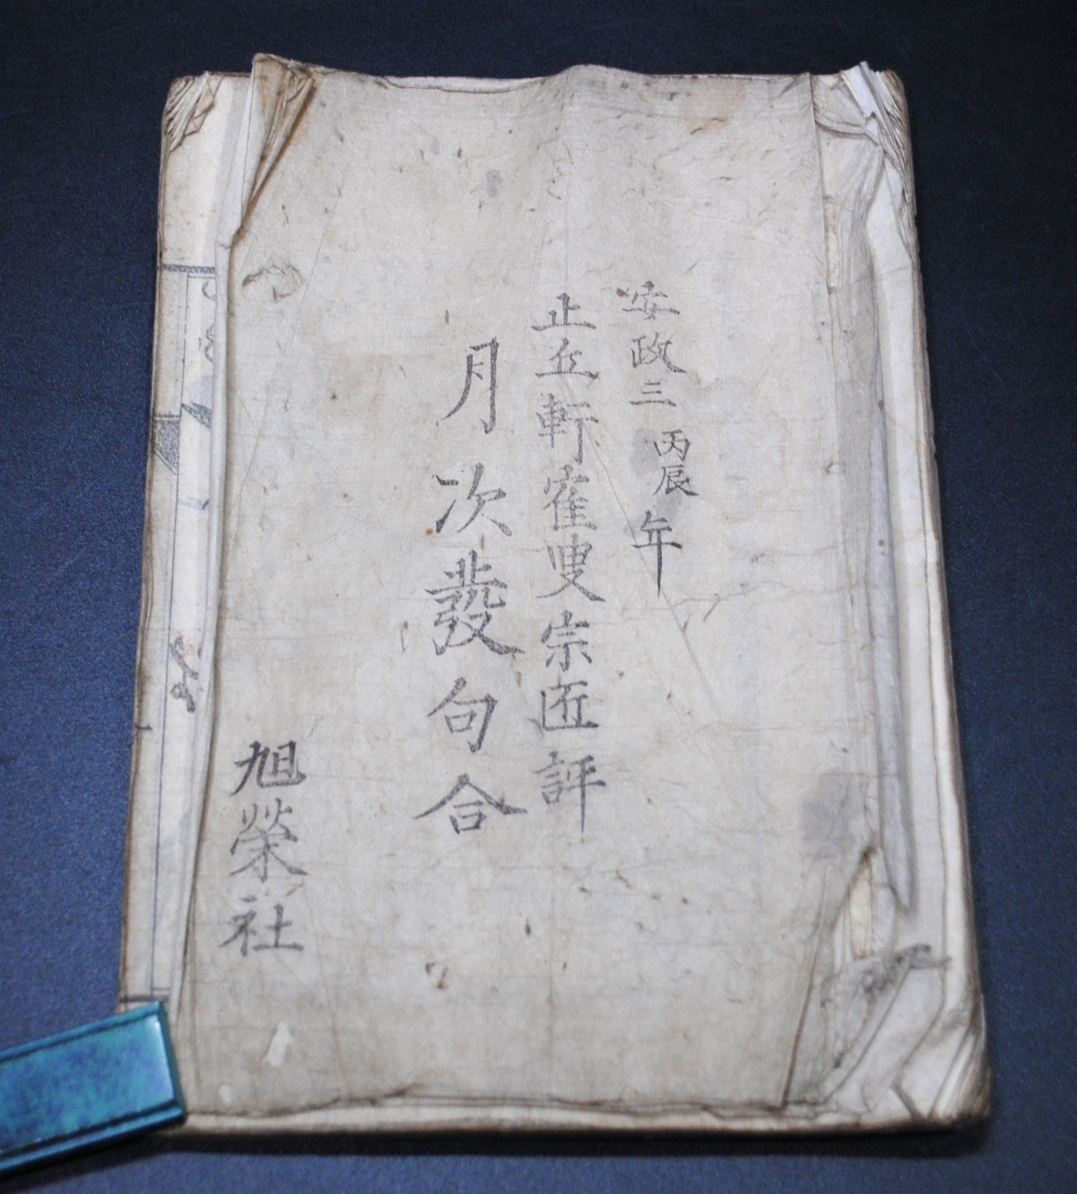 安政三丙辰年
止丘軒寉叟宗匠評
月次發句合
旭榮社